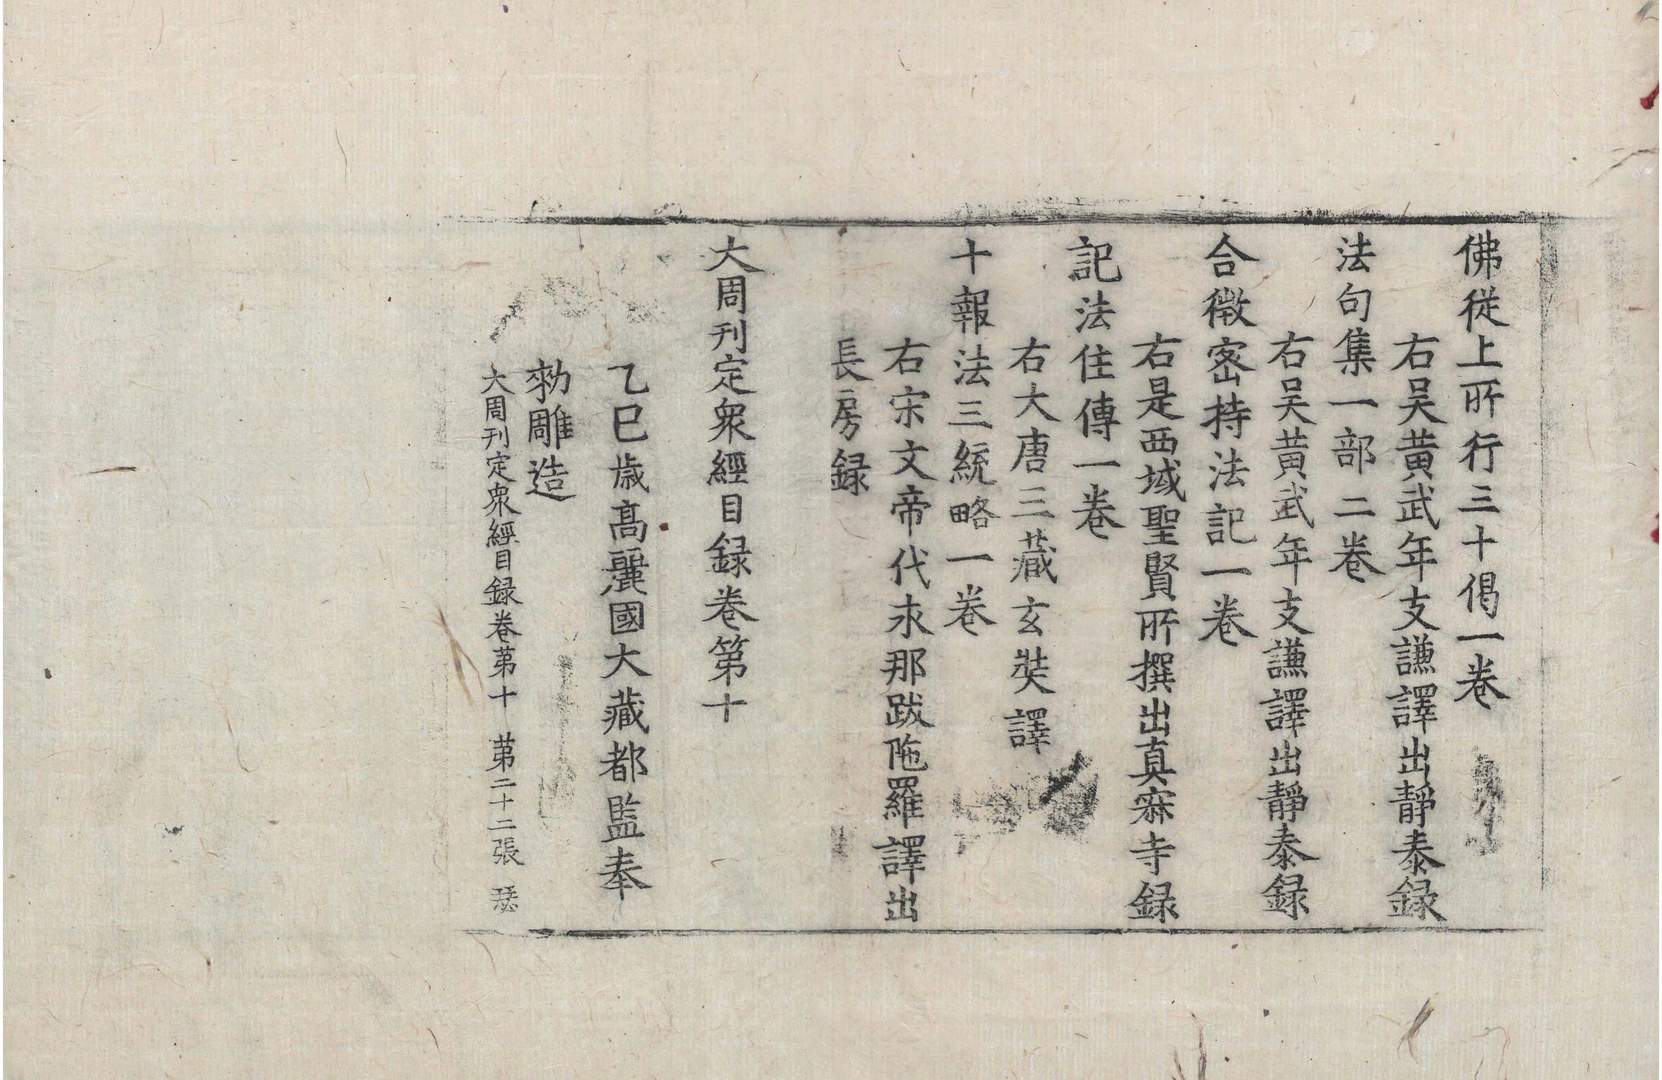 佛從上所行三十偈一卷
右吳黃武年支謙譯出靜泰録
法句集一部二卷
右吳黃武年支謙譯出靜泰録
合微密持法記一卷
右是西域聖賢所撰出真寂寺録
記法住傳一卷
右大唐三藏玄奘譯
十報法三統略一卷
右宋文帝代求那跋陁羅譯出
長房録
大周刊定衆經目録卷第十
乙巳歲高麗國大藏都監奉
勑雕造
大周刊定衆經目録卷第十 第二十二張 瑟